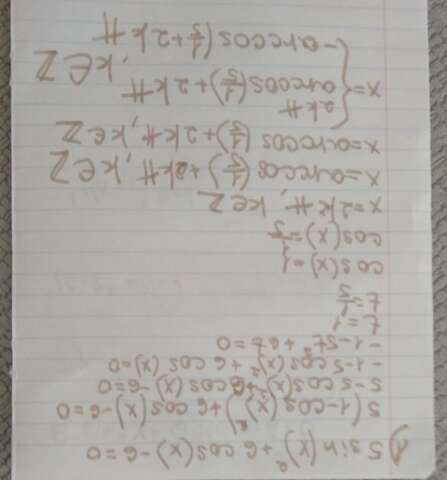 1) 5 sin(x)² + 6 cos(x) - 6 = 0
5(1 - cos(x)²) + 6 cos(x) - 6 = 0
5 - 5 cos(x)² + 6 cos(x) - 6 = 0
-1 - 5 cos(x)² + 6 cos(x) = 0
-1 - 5t² + 6t = 0
t = 1
t = 1/5
cos(x) = 1
cos(x) = 1/5
x = 2kπ, k ∈ Z
x = arccos(1/5) + 2kπ, k ∈ Z
x = arccos(1/5) + 2kπ, k ∈ Z
x = { 2kπ
arccos(1/5) + 2kπ , k ∈ Z
-arccos(1/5 + 2kπ